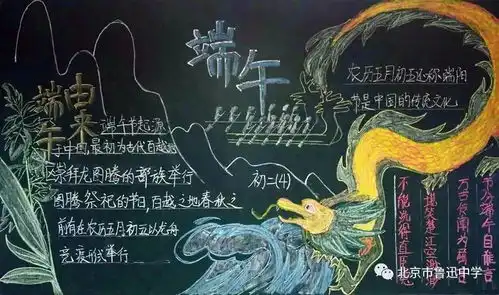 端午
端午由来
端午节起源
于中国,最初为古代百越地
区崇拜龙图腾的部族举行
图腾祭祀的节日,百越之地春秋之
前有在农历五月初五以龙舟
竞渡形式举行
初二(4)
农历五月初五还称端阳
节是中国的传统文化
节分端午自谁言
万古传闻为屈原
堪笑楚江空渺渺
不能洗得直臣冤
北京市鲁迅中学